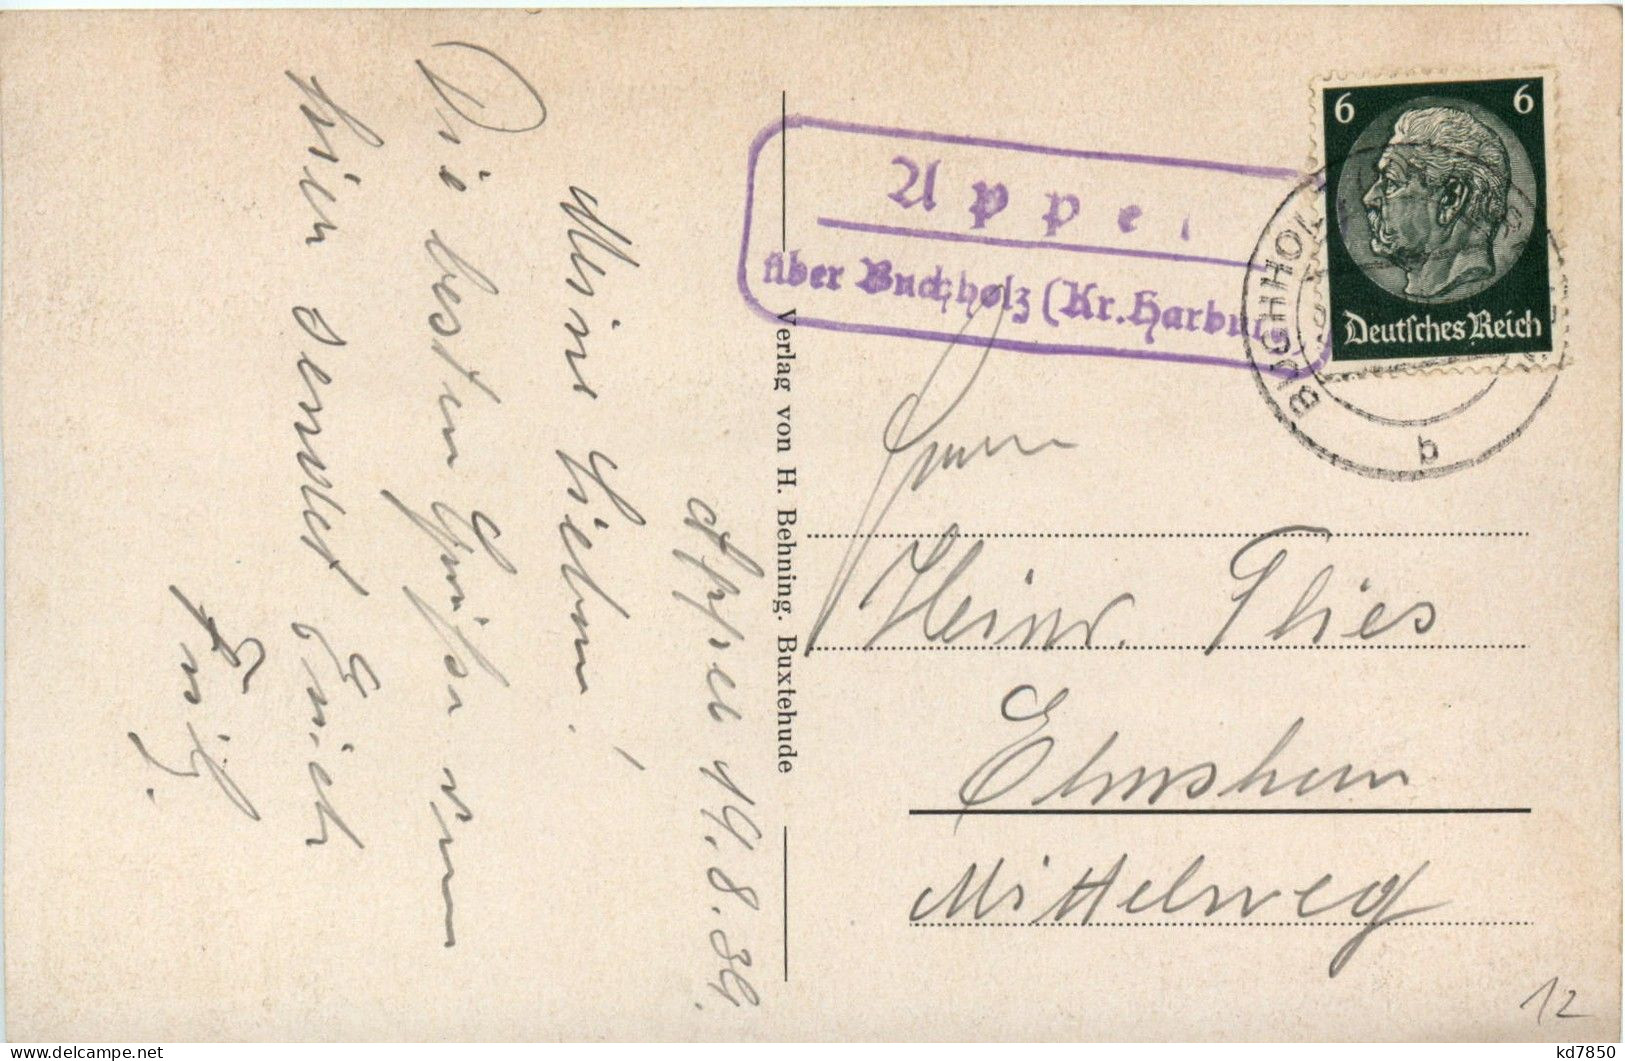 Appel 19.8.39.
Meine Lieben!
Die besten Grüße von
hier sendet Euch
6 6
Deutsches Reich
Appel
über Buchholz (Kr. Harburg)
BUCHHOL
b
Verlag von H. Behning. Buxtehude
Herrn
Heinr. Thies
Elmshorn
Mittelweg
12
kd7850